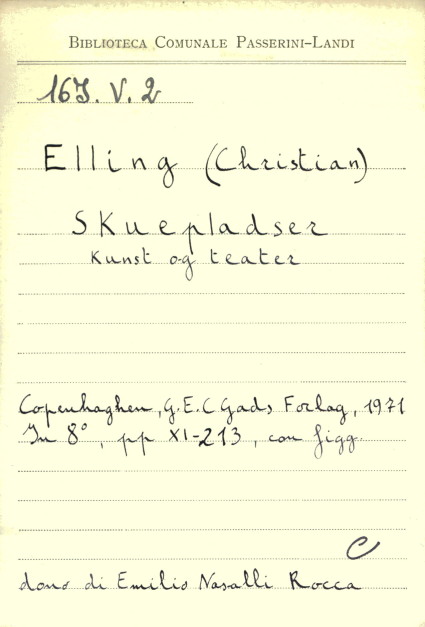 BIBLIOTECA COMUNALE PASSERINI-LANDI
16J. V. 2
Elling (Christian)
Skuepladser
Kunst og teater
Copenhaghen, G.E.C Gads Forlag, 1971
In 8°, pp XI-213, con figg.
C
dono di Emilio Nasalli Rocca